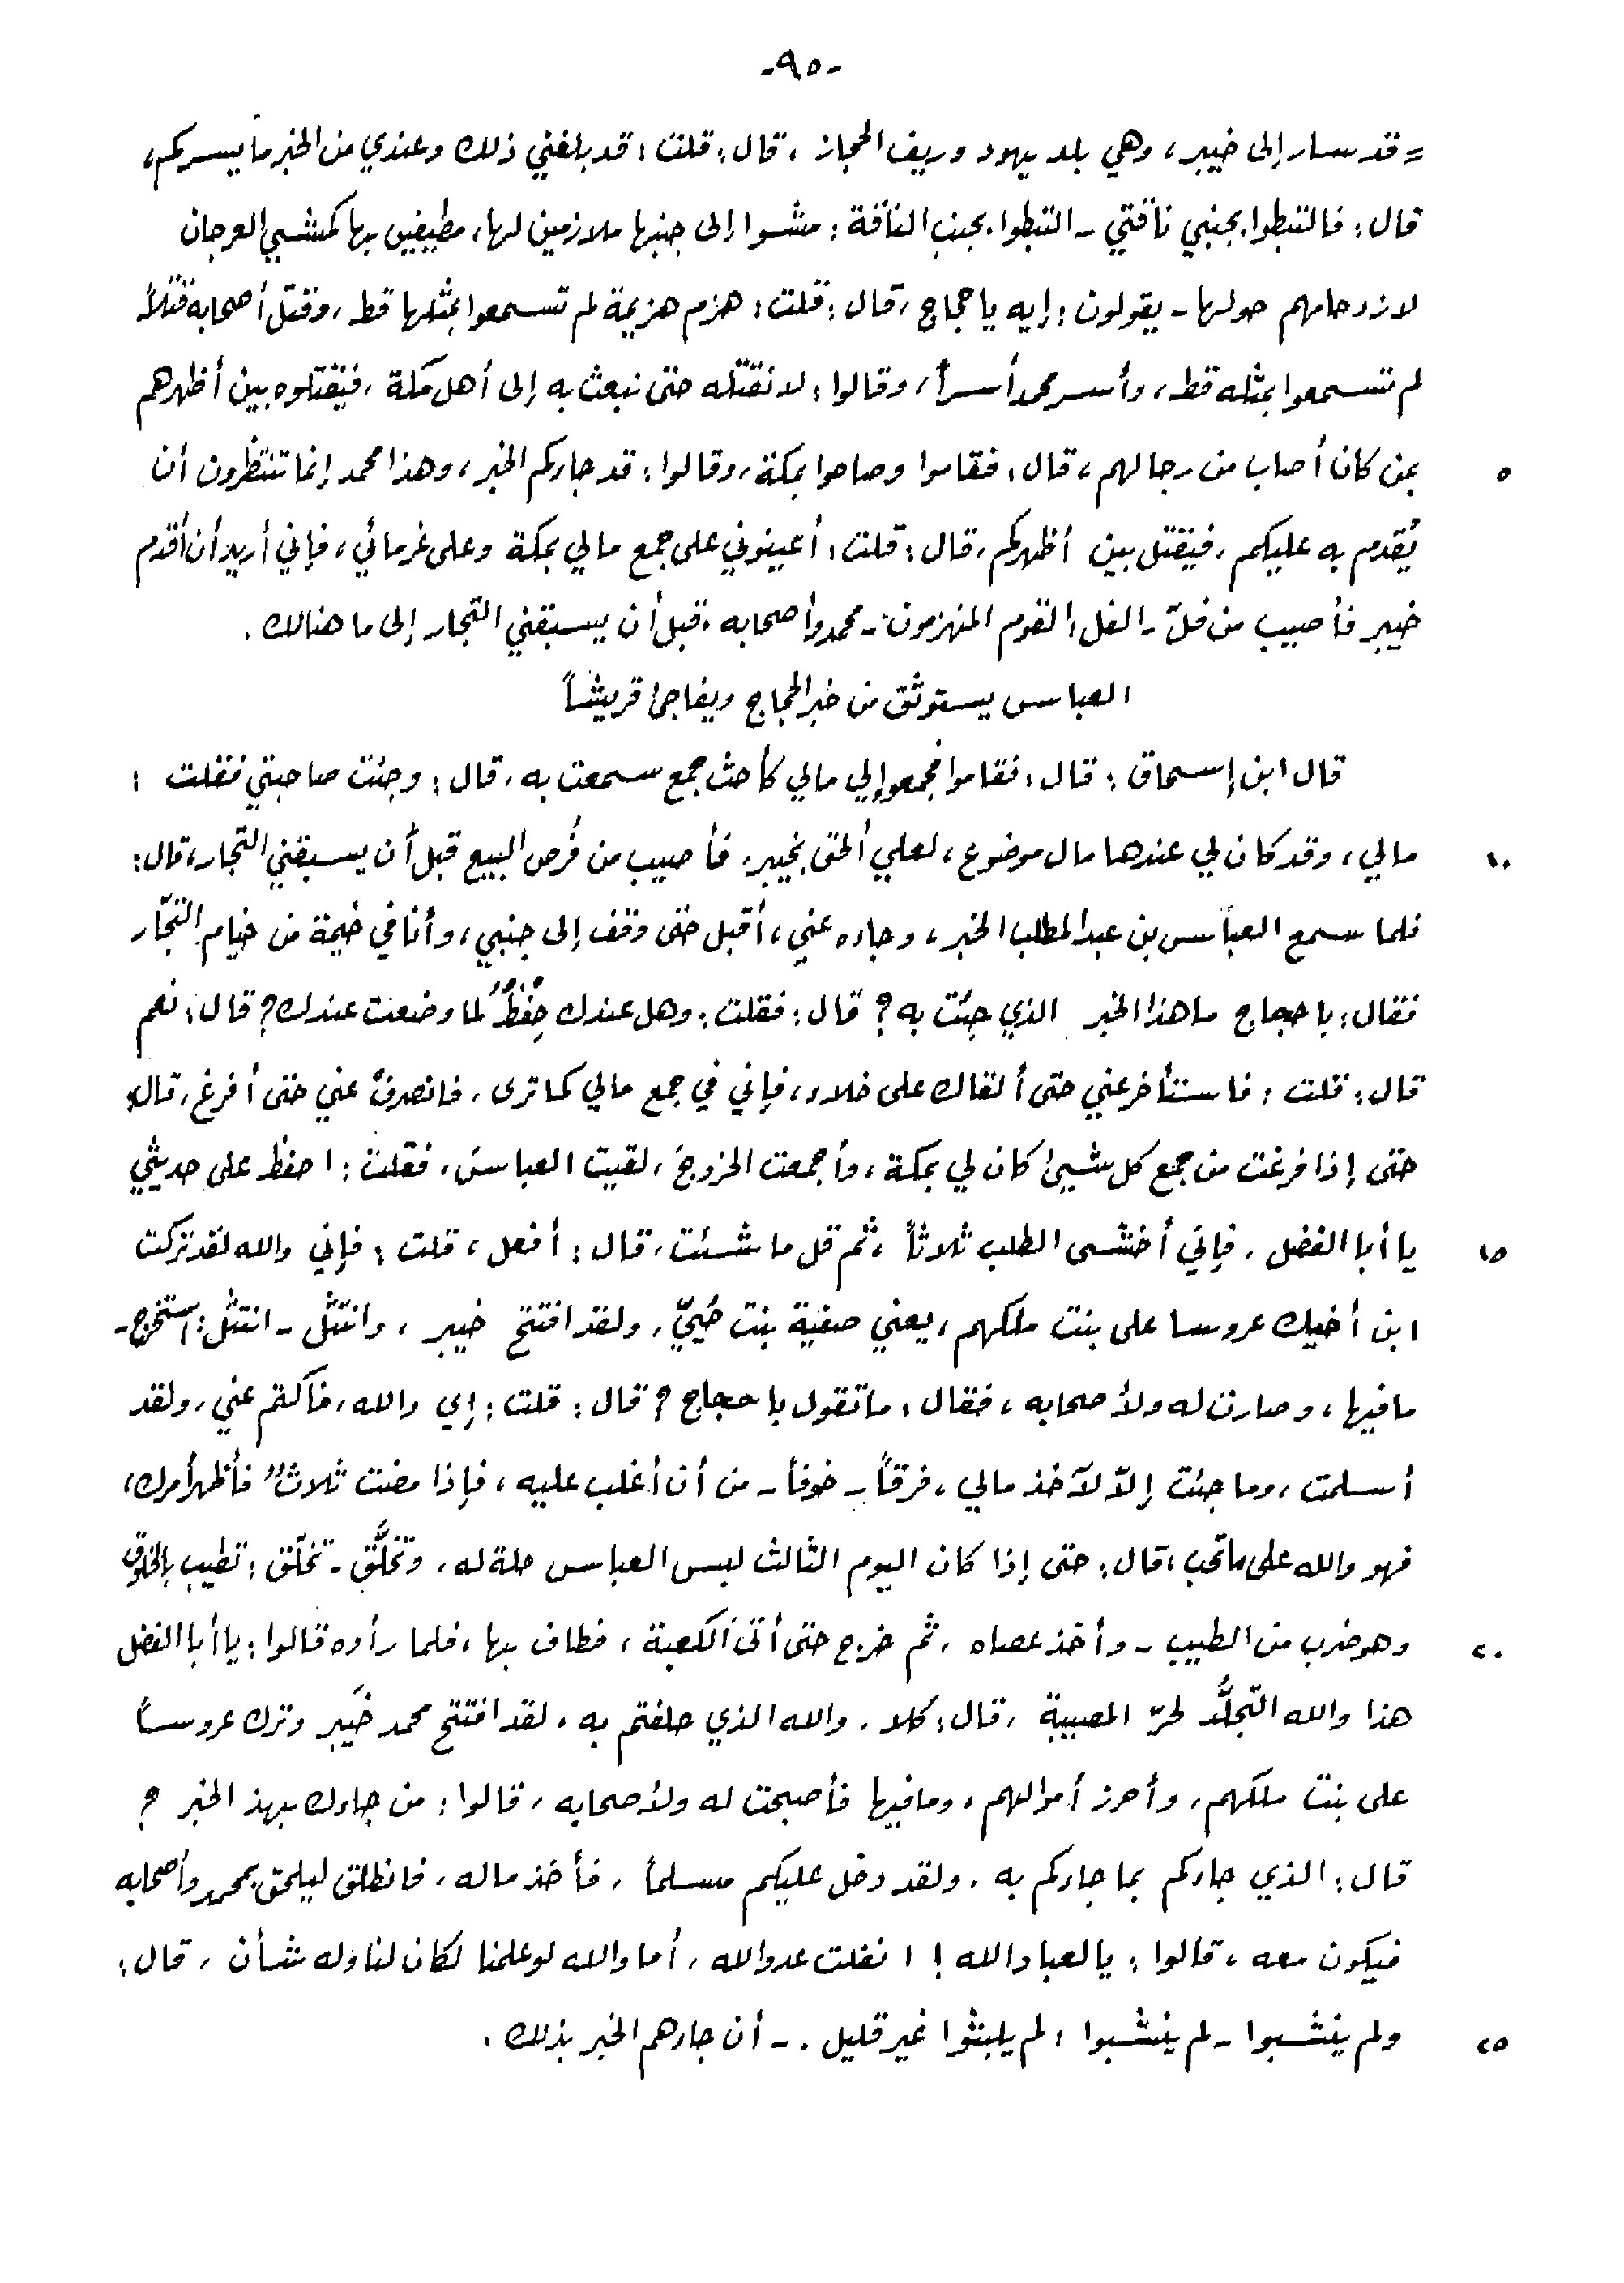 -٩٥-
= قد سار إلى خيبر، وهي بلد يهود وريف الحجاز، قال: قلت: قد بلغني ذلك وعندي من الخبر ما يسركم،
قال: فالتبطوا بجنبي ناقتي - التبطوا بجنب الناقة: مشوا إلى جنبها ملازمين لها، مطيفين بها كمشي العرجان
لازدحامهم حولها - يقولون: إيه يا حجاج، قال: قلت: هزم هزيمة لم تسمعوا بمثلها قط، وقتل أصحابه قتلاً
لم تسمعوا بمثله قط، وأسر محمد أسراً، وقالوا: لا نقتله حتى نبعث به إلى أهل مكة، فيقتلوه بين أظهرهم
٥ بمن كان أصاب من رجالهم، قال: فقاموا وصاحوا بمكة، وقالوا: قد جاءكم الخبر، وهذا محمد إنما تنتظرون أن
يُقدم به عليكم، فيقتل بين أظهركم، قال: قلت: أعينوني على جمع مالي بمكة وعلى غرمائي، فإني أريد أن أقدم
خيبر فأصيب من فلّ - الفل: القوم المنهزمون - محمد وأصحابه، قبل أن يسبقني التجار إلى ما هنالك.
العباس يستوثق من خبر الحجاج ويفاجئ قريشاً
قال ابن إسحاق: قال: فقاموا فجمعوا إلي مالي كأحث جمع سمعت به، قال: وجئت صاحبتي فقلت:
١٠ مالي، وقد كان لي عندها مال موضوع، لعلي ألحق بخيبر، فأصيب من فُرص البيع قبل أن يسبقني التجار، قال:
فلما سمع العباس بن عبد المطلب الخبر، وجاءه عني، أقبل حتى وقف إلى جنبي، وأنا في خيمة من خيام التجّار
فقال: يا حجاج ما هذا الخبر الذي جئت به؟ قال: فقلت: وهل عندك حِفْظٌ لما وضعت عندك؟ قال: نعم
قال: قلت: فاستأخر عني حتى ألقاك على خلاء، فإني في جمع مالي كما ترى، فانصرف عني حتى أفرغ، قال:
حتى إذا فرغت من جمع كل شيئ كان لي بمكة، وأجمعت الخروج، لقيت العباس، فقلت: احفظ على حديثي
١٥ يا أبا الفضل، فإني أخشى الطلب ثلاثاً، ثم قل ما شئت، قال: أفعل، قلت: فإني والله لقد تركت
ابن أخيك عروسا على بنت ملكهم، يعني صفية بنت حُييّ، ولقد افتتح خيبر، وانتثل - انتثل: استخرج -
ما فيها، وصارت له ولأصحابه، فقال: ما تقول يا حجاج؟ قال: قلت: إي والله، فاكتم عني، ولقد
أسلمت، وما جئت إلاّ لآخذ مالي، فرقاً - خوفاً - من أن أغلب عليه، فإذا مضت ثلاثٌ فأظهر أمرك،
فهو والله على ما تحب، قال: حتى إذا كان اليوم الثالث لبس العباس حلة له، وتخلَّق - تخلّق: تطيب بالخلوق
٢٠ وهو ضرب من الطيب - وأخذ عصاه، ثم خرج حتى أتى الكعبة، فطاف بها، فلما رأوه قالوا: يا أبا الفضل
هذا والله التجلُّد لحرّ المصيبة، قال: كلا، والله الذي حلفتم به، لقد افتتح محمد خَيبر وترك عروساً
على بنت ملكهم، وأحرز أموالهم، وما فيها فأصبحت له ولأصحابه، قالوا: من جاءك بهذ الخبر؟
قال: الذي جاءكم بما جاءكم به، ولقد دخل عليكم مسلماً، فأخذ ماله، فانطلق ليلحق بمحمد وأصحابه
فيكون معه، قالوا: يا لعباد الله! انفلت عدو الله، أما والله لو علمنا لكان لنا وله شأن، قال:
٢٥ ولم ينشبوا - لم ينشبوا: لم يلبثوا غير قليل. - أن جاءهم الخبر بذلك.